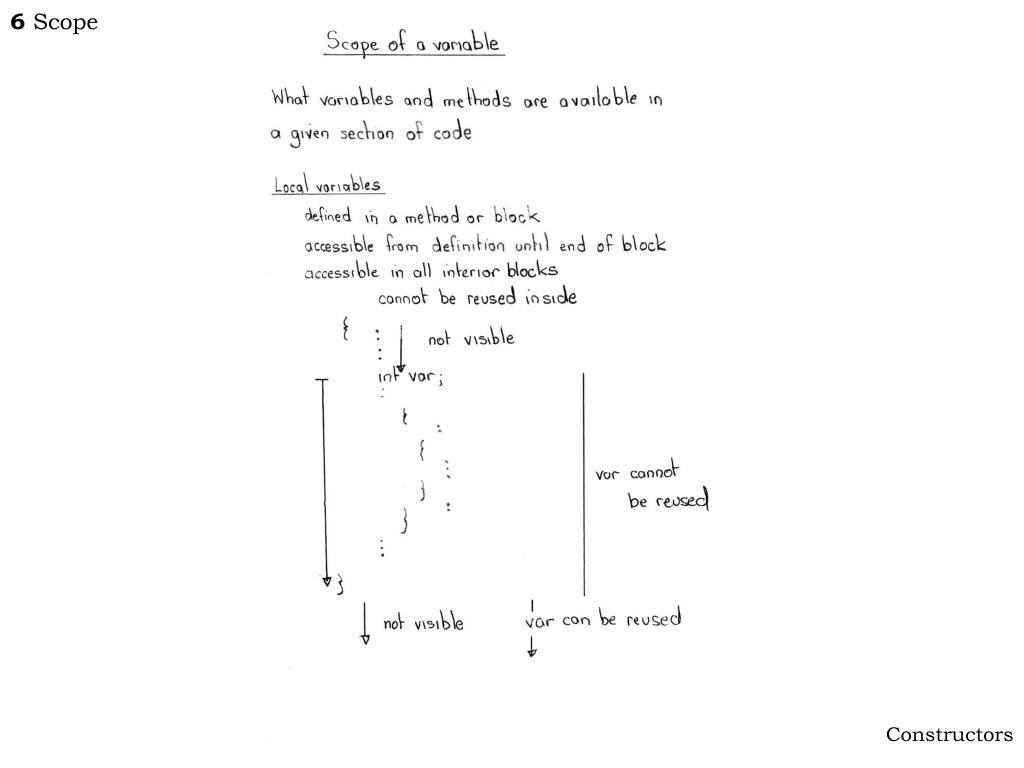 6 Scope
Scope of a variable
What variables and methods are available in
a given section of code
Local variables
defined in a method or block
accessible from definition until end of block
accessible in all interior blocks
cannot be reused inside
{ : not visible
:
int var;
:
{
:
{
:
}
:
}
:
var cannot
be reused
}
not visible
var can be reused
Constructors